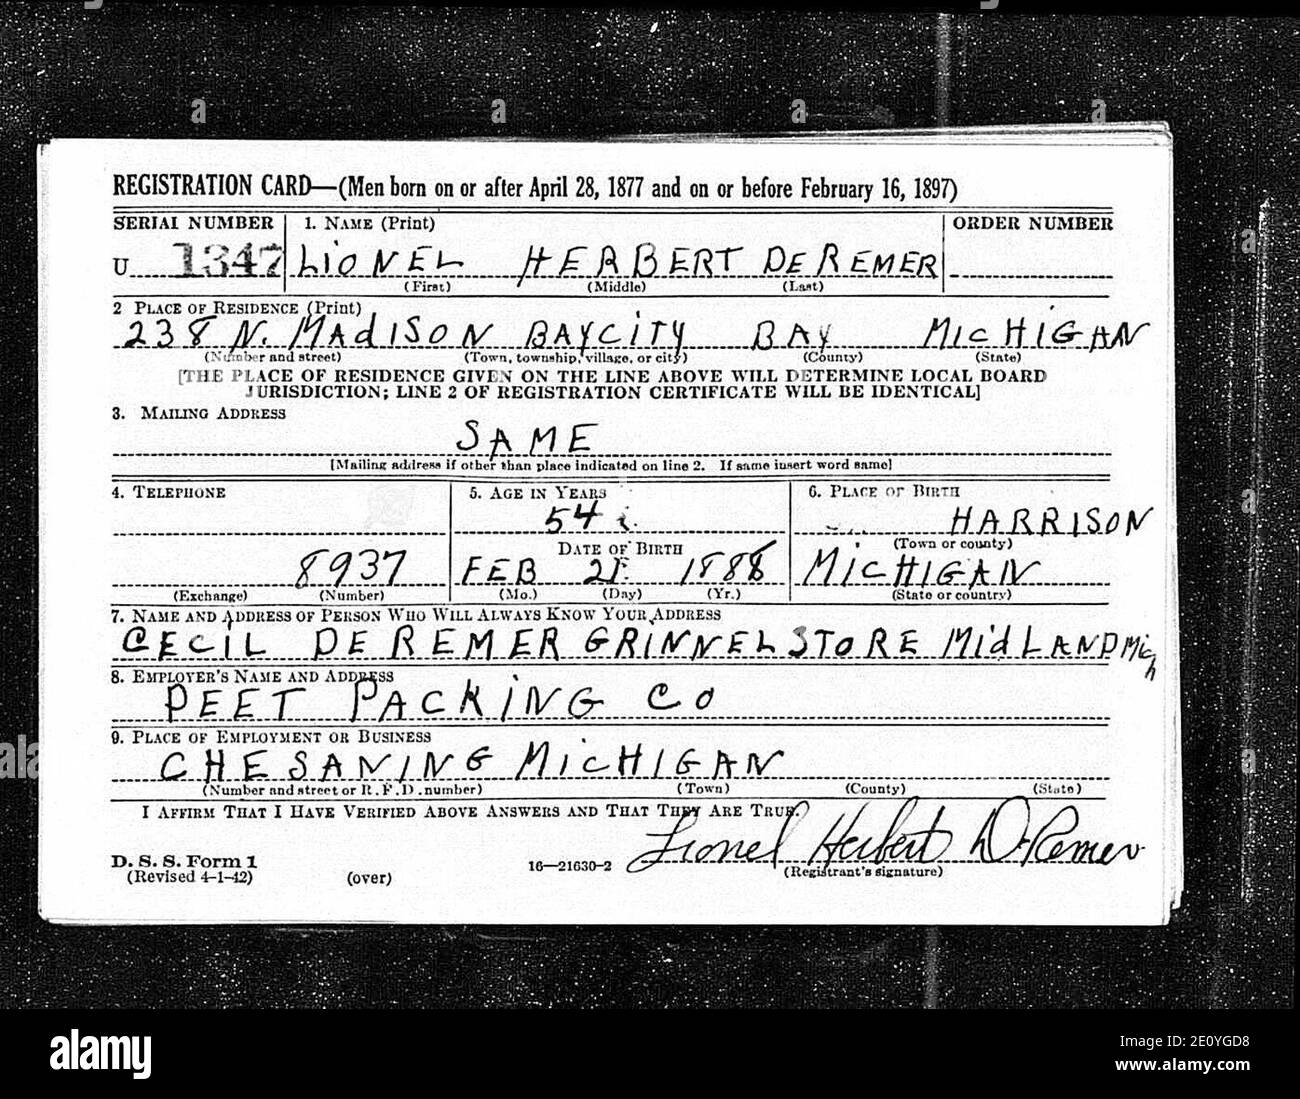 REGISTRATION CARD—(Men born on or after April 28, 1877 and on or before February 16, 1897)
SERIAL NUMBER 1. NAME (Print) ORDER NUMBER
U 1347 LIONEL HERBERT DEREMER
(First) (Middle) (Last)
2 PLACE OF RESIDENCE (Print)
238 N. MADISON BAYCITY BAY MICHIGAN
(Number and street) (Town, township, village, or city) (County) (State)
[THE PLACE OF RESIDENCE GIVEN ON THE LINE ABOVE WILL DETERMINE LOCAL BOARD
JURISDICTION; LINE 2 OF REGISTRATION CERTIFICATE WILL BE IDENTICAL]
3. MAILING ADDRESS
SAME
[Mailing address if other than place indicated on line 2. If same insert word same]
4. TELEPHONE 5. AGE IN YEARS 6. PLACE OF BIRTH
54 HARRISON
DATE OF BIRTH (Town or county)
8937 FEB 21 1888 MICHIGAN
(Exchange) (Number) (Mo.) (Day) (Yr.) (State or country)
7. NAME AND ADDRESS OF PERSON WHO WILL ALWAYS KNOW YOUR ADDRESS
CECIL DEREMER GRINNEL STORE MIDLAND Mich
8. EMPLOYER'S NAME AND ADDRESS
PEET PACKING CO
9. PLACE OF EMPLOYMENT OR BUSINESS
CHESANING MICHIGAN
(Number and street or R. F. D. number) (Town) (County) (State)
I AFFIRM THAT I HAVE VERIFIED ABOVE ANSWERS AND THAT THEY ARE TRUE.
Lionel Herbert DeRemer
D. S. S. Form 1 16—21630-2 (Registrant's signature)
(Revised 4-1-42) (over)
alamy
Image ID: 2E0YGD8
www.alamy.com